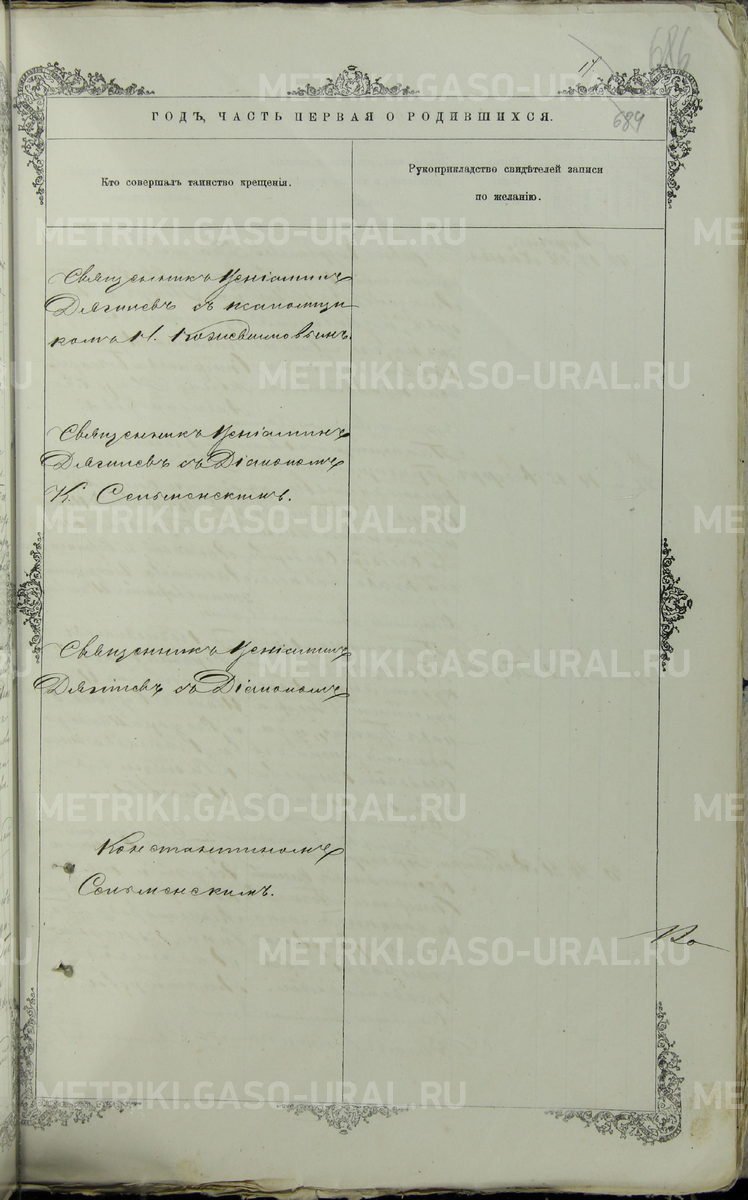 686
17
689
ГОДЪ, ЧАСТЬ ПЕРВАЯ О РОДИВШИХСЯ.
Кто совершалъ таинство крещенія.
Рукоприкладство свидѣтелей записи
по желанію.
Священникъ Веніаминъ
Дягилевъ съ псаломщи
комъ
Священникъ Веніаминъ
Дягилевъ съ Діакономъ
К. Сельменскимъ.
Священникъ Веніаминъ
Дягилевъ съ Діакономъ
Константиномъ
Сельменскимъ.
METRIKI.GASO-URAL.RU